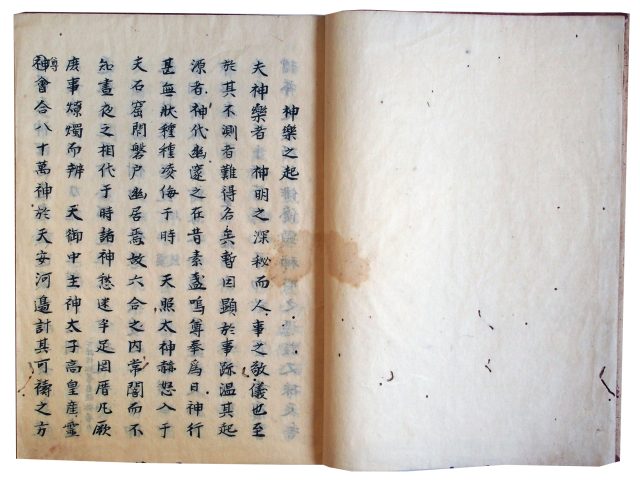 神樂之起
夫神樂者 神明之深秘而人事之敬儀也至
於其不測者難得名矣暫因顯於事跡温其起
源者神代幽邃之在昔素盞嗚尊奉爲日神行
甚無狀種種凌侮于時 天照太神赫怒入于
天石窟閇磐戸幽居焉故六合之内常闇而不
知晝夜之相代于時諸神愁迷手足罔厝凡厥
庶事燎燭而辨 天御中主神太子高皇産靈
尊
神會合八十萬神於天安河邊計其可禱之方